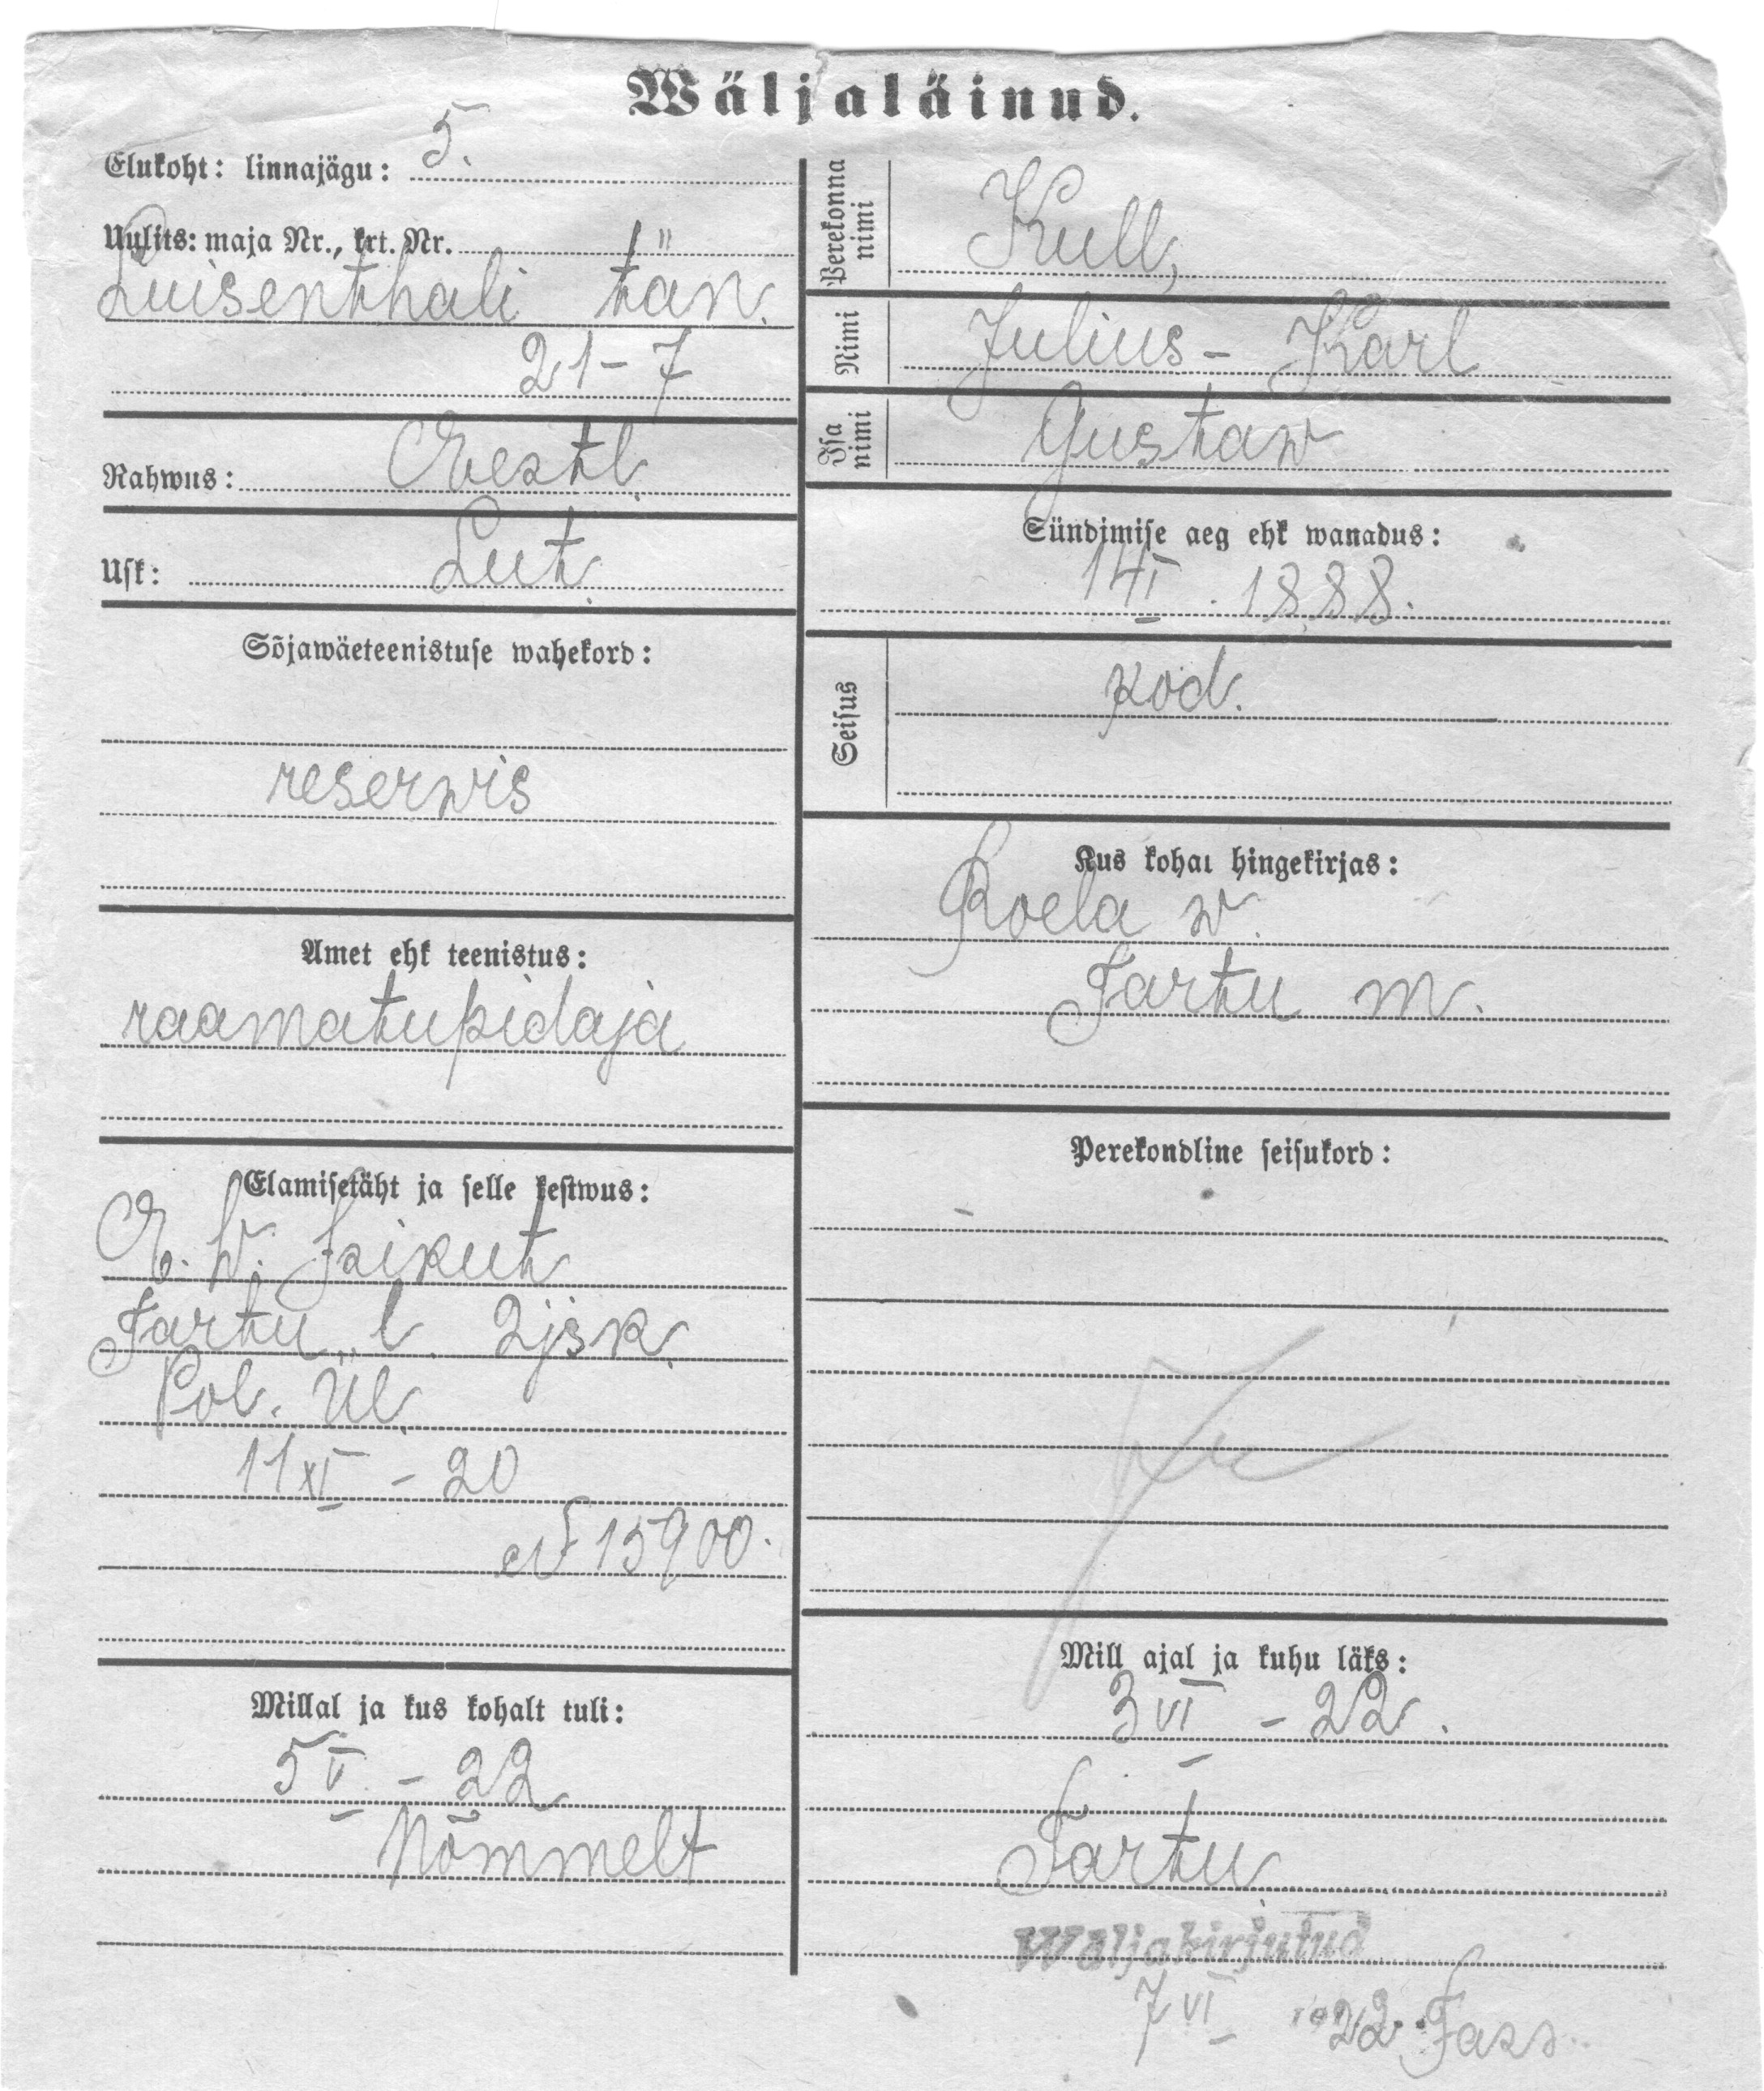 Wäljaläinud.
Elukoht: linnajägu: 5.
Uulits: maja Nr., krt. Nr.
Luisenthali tän.
21-7
Rahwus: Eestl.
Usk: Lut.
Sõjawäeteenistuse wahekord:
reserwis
Amet ehk teenistus:
raamatupidaja
Elamisetäht ja selle kestwus:
E. W. Isikut
Tartu l. 2jsk.
Pol. Ül.
11 XI - 20
№ 15900.
Millal ja kus kohalt tuli:
5 V - 22
Nõmmelt
Perekonna nimi Kull,
Nimi Julius - Karl
Isa nimi Gustaw
Sündimise aeg ehk wanadus:
14 I . 1888.
Seisus kod.
Kus kohat hingekirjas:
Roela w.
Tartu m.
Perekondline seisukord:
Mill ajal ja kuhu läks:
3 VI - 22.
Tartu
Wäljakirjutud
7 VI 1922.